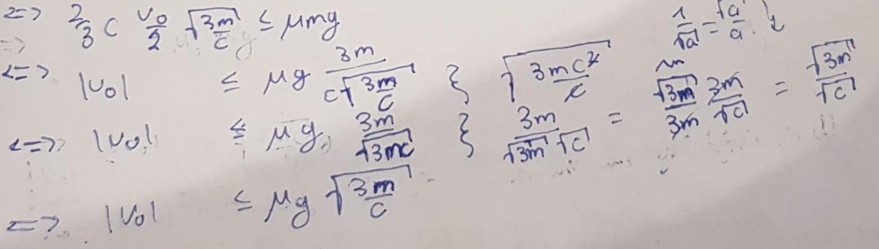 <=> 2/3 c v₀/2 √(3m/c) ≤ μmg 1/√a = √a/a
<=> |v₀| ≤ μg 3m/(c√(3m/c)) } √(3mc²/c)
<=> |v₀| ≤ μg 3m/√(3mc) } 3m/(√3m √c) = √3m/3m 3m/√c = √3m/√c
<=> |v₀| ≤ μg √(3m/c)